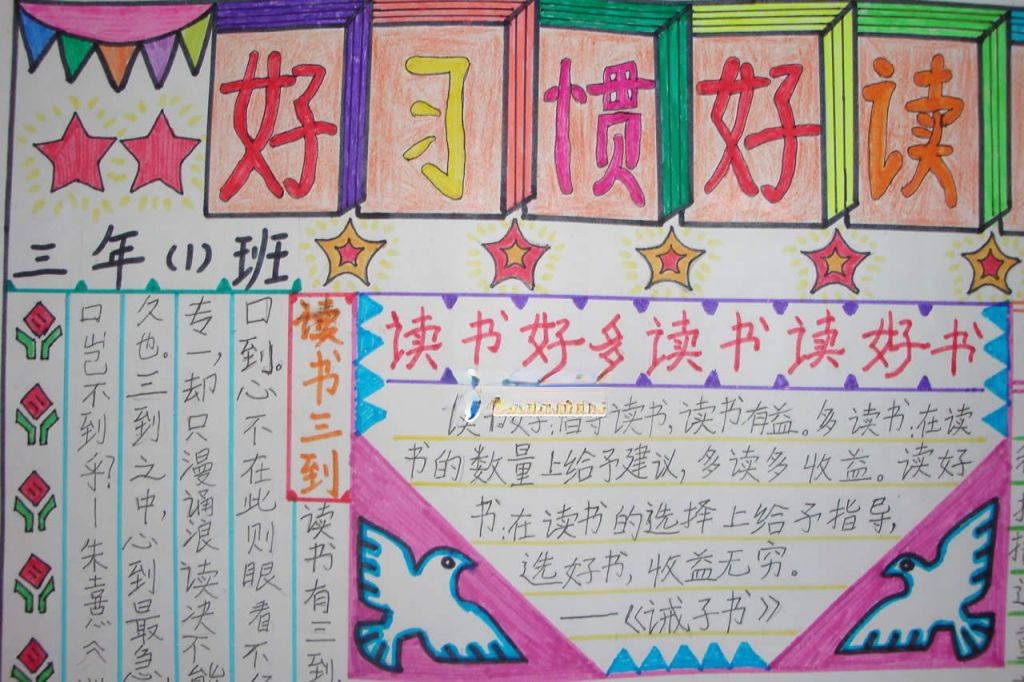 好习惯好读
三年(1)班
读书好多读书读好书
读书好:指导读书,读书有益。多读书:在读
书的数量上给予建议,多读多收益。读好
书:在读书的选择上给予指导,
选好书,收益无穷。
——《诫子书》
读书三到
读书有三到,
口到。心不在此则眼看不
专一,却只漫诵浪读决不能
久也。三到之中,心到最急
口岂不到乎?—朱熹《